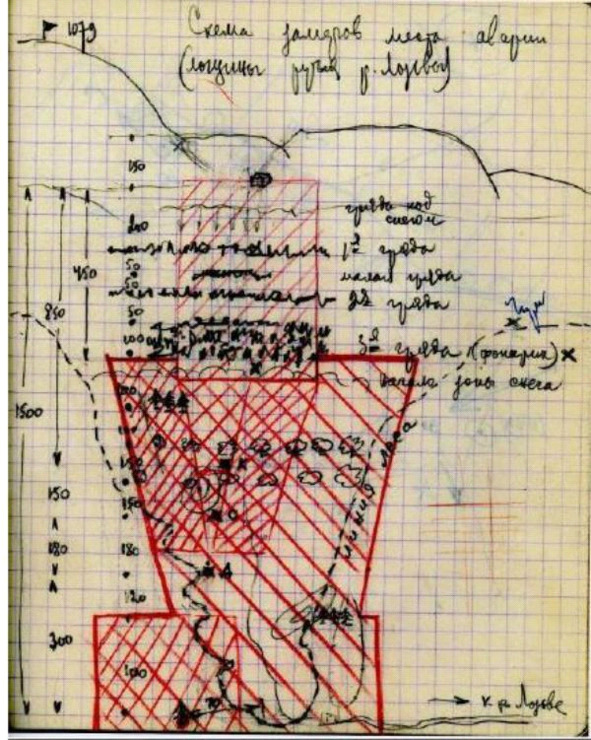 1079
Схема замеров места аварии
(лощины ручья р. Лозьвы)
150
гряда под
снегом
200
1я гряда
50
малая гряда
450
50
2я гряда
50
850
50
100
3я гряда (фонарик) X
начало зоны снега
200
1500
линия леса
150
150
150
180
180
120
300
100
70
к р. Лозьве